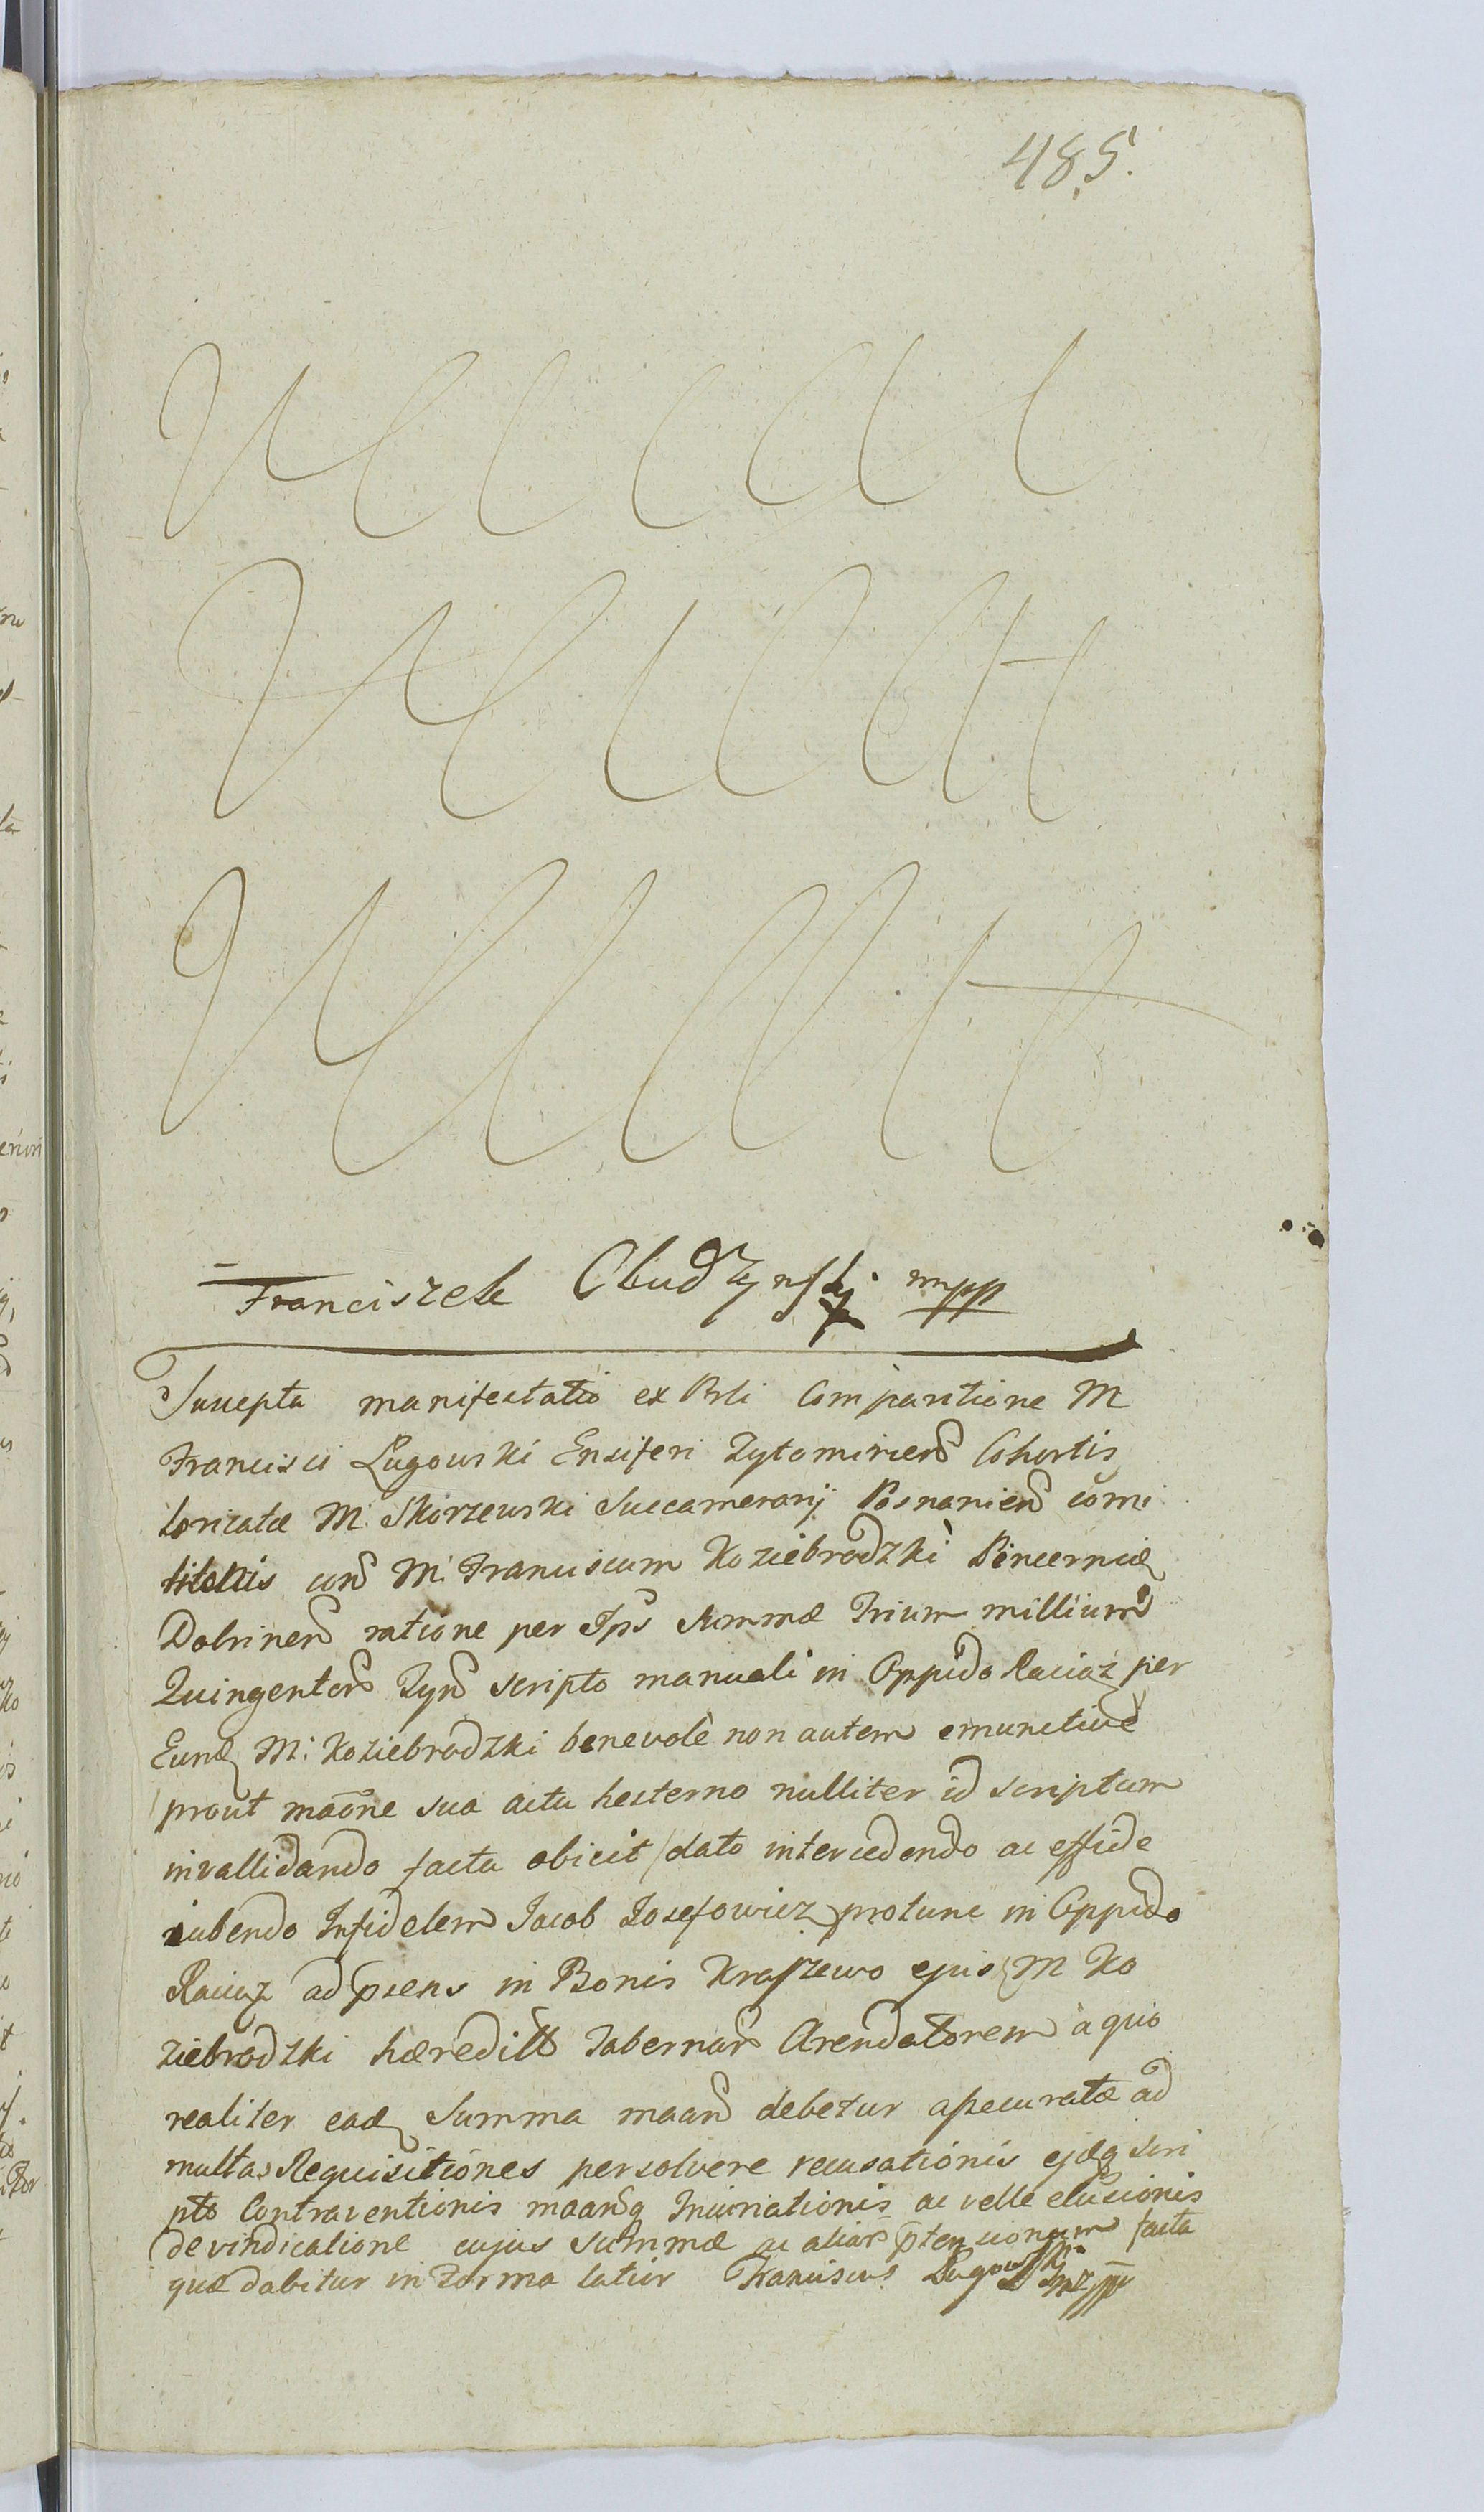 485.
Franciszek Chudzynsky mpp
Suscepta manifestatio ex Prli Comparitione M
Francisci Lugowski Ensiferi Zytomirien Cohortis
Loricatæ M. Skorzewski Succamerarij Posnanien com̄i
litonis con M. Franciscum Koziebrodzki Pincernię
Dobrinen ratione per Ips Summæ Trium millium
Quingentor Tyn scripto manuali in Oppido Raciąz per
Eund M: Koziebrodzki benevolè non autem emunctivè
prout mãone sua actu hesterno nulliter id scriptum
invallidando facta obicit / dato intercedendo ac effide
iubendo Infidelem Jacob Josefowicz protunc in Oppido
Raciąz ad præsens in Bonis Kraszewo ejus M Ko
ziebrodzki hæredittt Tabernar Arendatorem à quo
realiter eadę Summa maan debetur assecuratæ ad
multas Requisitiones persolvere recusationis ejdęq scri
pto Contraventionis maanq Iniuriationis ac velle elusionis
de vindicatione cujus Summæ ac aliar p̄tensionum facta
quæ dabitur in Forma latior Franciscus Lugowski